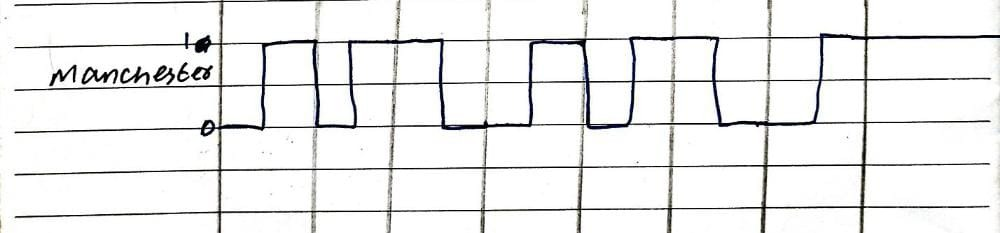 1
Manchester
0